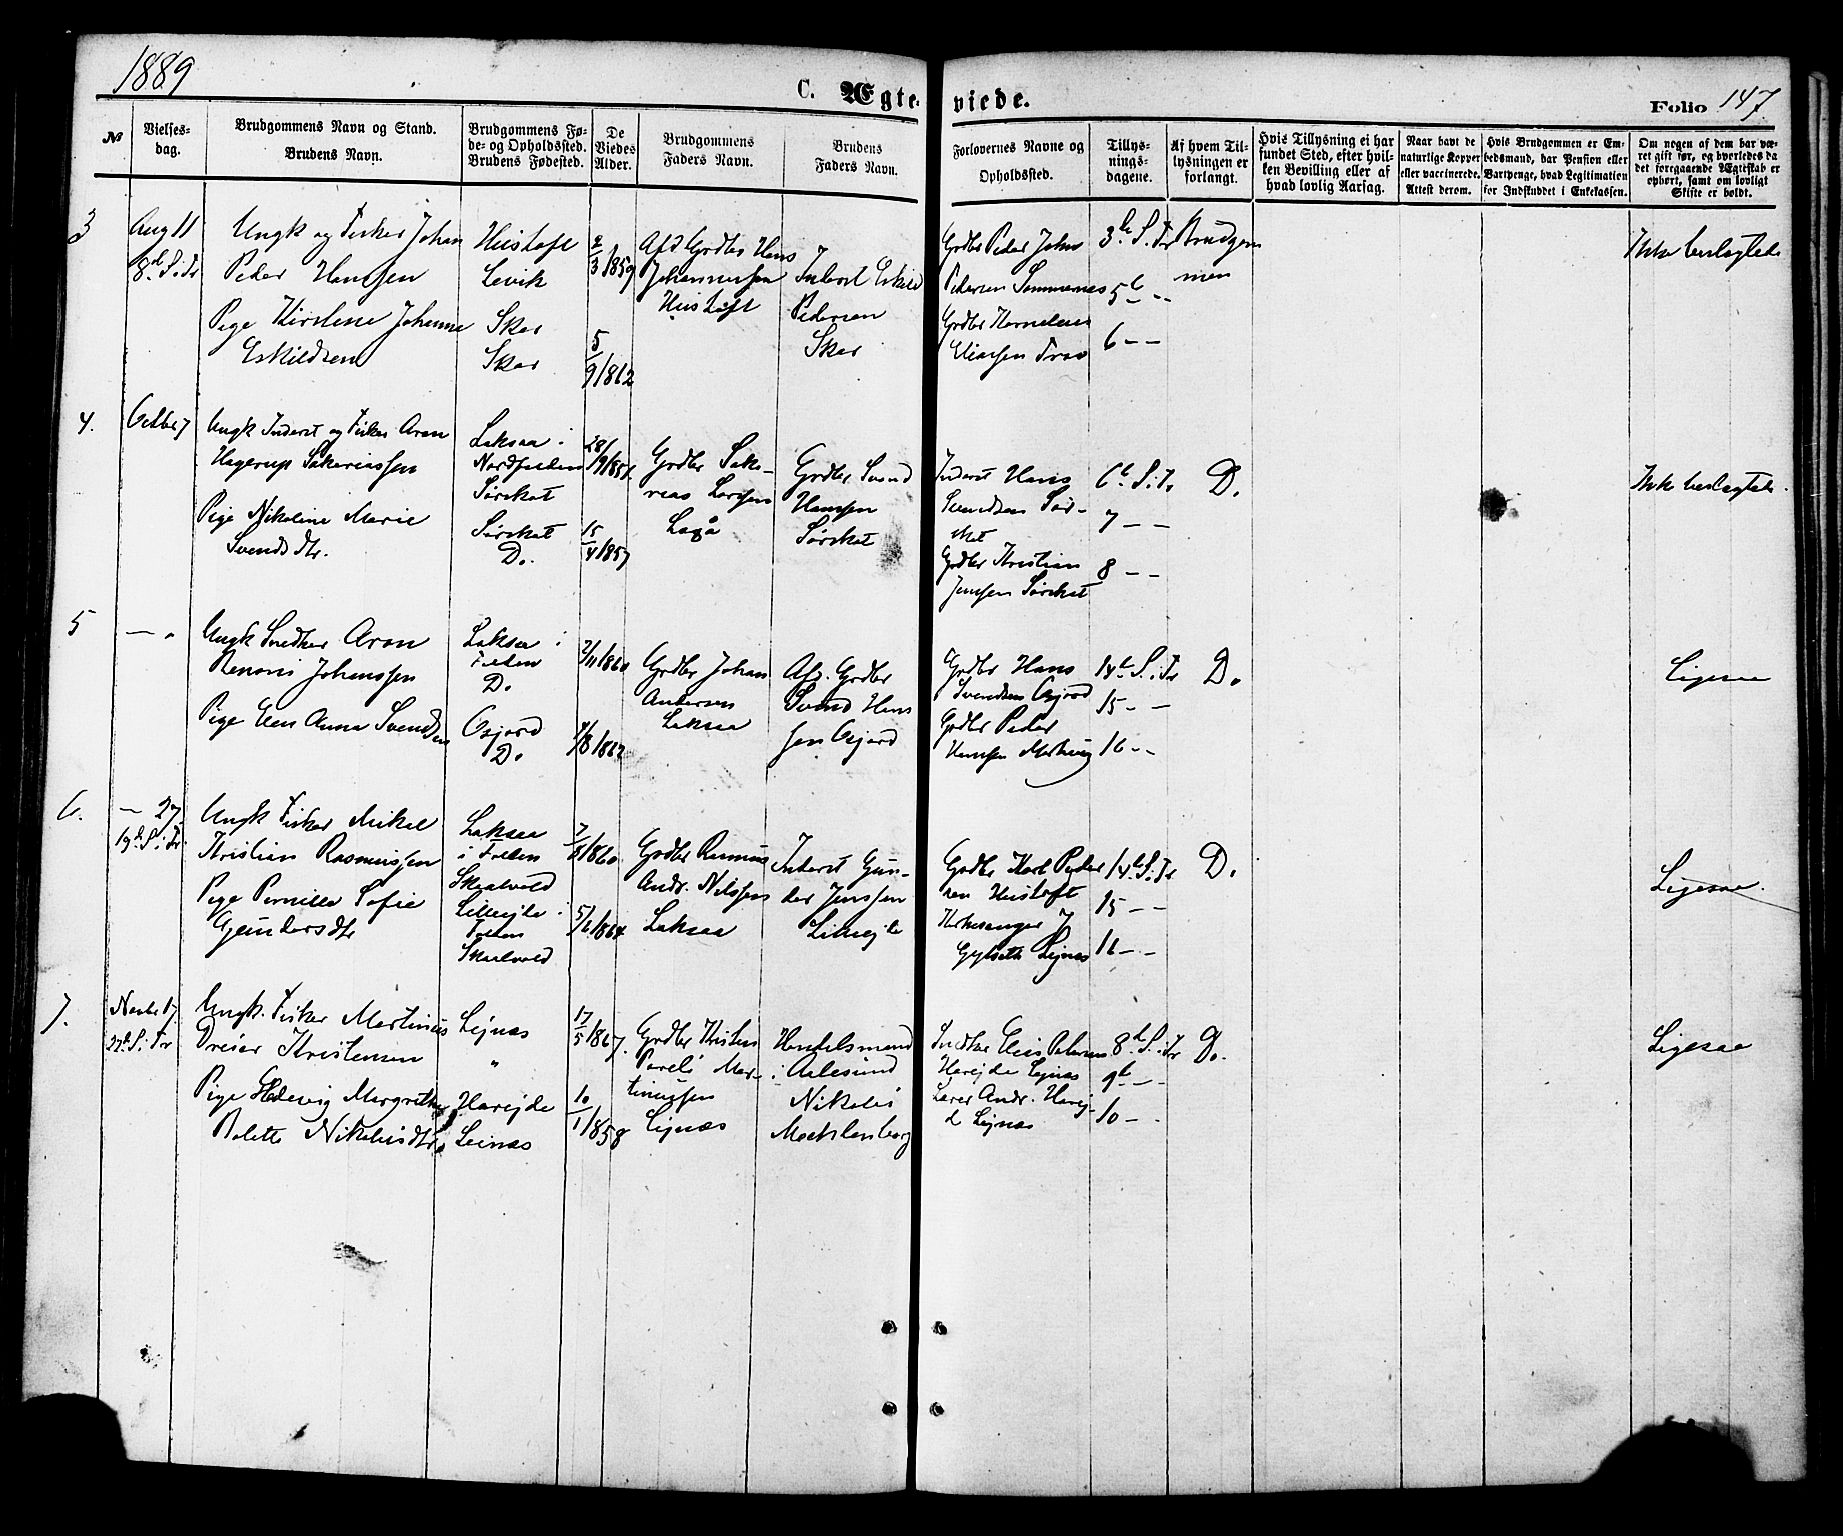 1889
C. Ægte-
viede.
Folio 147
№
Vielses-
dag.
Brudgommens Navn og Stand.
Brudens Navn.
Brudgommens Fø-
de- og Opholdssted.
Brudens Fødested.
De
Viedes
Alder.
Brudgommens
Faders Navn.
Brudens
Faders Navn.
Forlovernes Navne og
Opholdssted.
Tillys-
nings-
dagene.
Af hvem Til-
lysningen er
forlangt.
Hvis Tillysning ei har
fundet Sted, efter hvil-
ken Bevilling eller af
hvad lovlig Aarsag.
Naar havt de
naturlige Kopper
eller vaccinerede.
Attest derom.
Hvis Brudgommen er Em-
bedsmand, har Pension eller
Vartpenge, hvad Legitimation
for Indskuddet i Enkekassen.
Om nogen af dem har væ-
ret gift før, og hvorledes da
det foregaaende Ægteskab er
ophørt, samt om lovligt
Skifte er holdt.
3
Aug 11
8d S. i Tr
Ungk og Fisker Johan
Peder Hansen
Pige Kirstine Johanna
Eskildsen
Hustoft
Levik
Skar
Skar
2/3 1859
5/9 1862
Afd Grdbr Hans
Johannessen
Hustoft
Inderst Eskild
Pedersen
Skar
Grdbr Peder Johan
Pedersen Sommernæs
Grdbr Kornelius
Eliassen
3de S. Tr
5te - -
6 - -
Brudgom
men
Ikke beslægtede
4.
Octbr 7
Ungk Inderst og Fisker Aron
Hagerup Sakariassen
Pige Nikoline Marie
Svendsdtr.
Laksaa i
Nordfolden
Sørskot
Sørskot
D.
28/9 1854
15/4 1857
Grdbr Saka-
rias Larsen
Laxå
Grdbr Svend
Hansen
Sørskot
Inderst Hans
Svendsen Sør-
skot
Grdbr Kristian
Jensen Sørskot
6te S. i Tr
7 - -
8 - -
D.
Ikke beslægtede.
5
— "
Ungk Snedker Aron
Renoni Johanssen
Pige Elen Anna Svendsen
Laksaa i
Folden
D.
Osjord
D.
2/11 1860
4/8 1862
Grdbr Johan
Andersen
Laksaa
Afd. Grdbr
Svend Han
sen Osjord
Grdbr Hans
Svendsen Osjord
Grdbr Peder
Hansen Mørkvig
14de S. i Tr
15 - -
16 - -
D.
Ligesaa
6.
— 27
19de S. i Tr.
Ungk Fisker Mikal
Kristian Rasmussen
Pige Pernille Sofie
Gundersdtr
Laksaa
i Folden
Skaalvold
Lillejle i
Folden
Skaalvold
7/8 1860
5/6 1864
Grdbr Rasmus
Andr. Nilssen
Laksaa
Inderst Gun-
der Jenssen
Lillejle
Grdbr Karl Peder
sen Hustoft
Kirkesanger J
Gylseth Lejnæs
14de S. i Tr
15 - -
16 - -
D.
Ligesaa.
7.
Novbr 17
22de S. i Tr
Ungk. Fisker Martinus
Dreier Kristensen
Pige Hedevig Margrethe
Bolette Nikolaisdtr
Lejnæs
"
Havejde
Leinæs
17/5 1867.
10/1 1858
Grdbr Kristen
Pareli Mar-
tinussen
Lejnæs
Handelsmand
i Aalesund
Nikolai
Mecklenborg
Indtar Elias Petersen
Havejde Lejnæs
Lærer Andr. Havej-
de Lejnæs
8de S. i Tr
9de - -
10 -
D.
Ligesaa